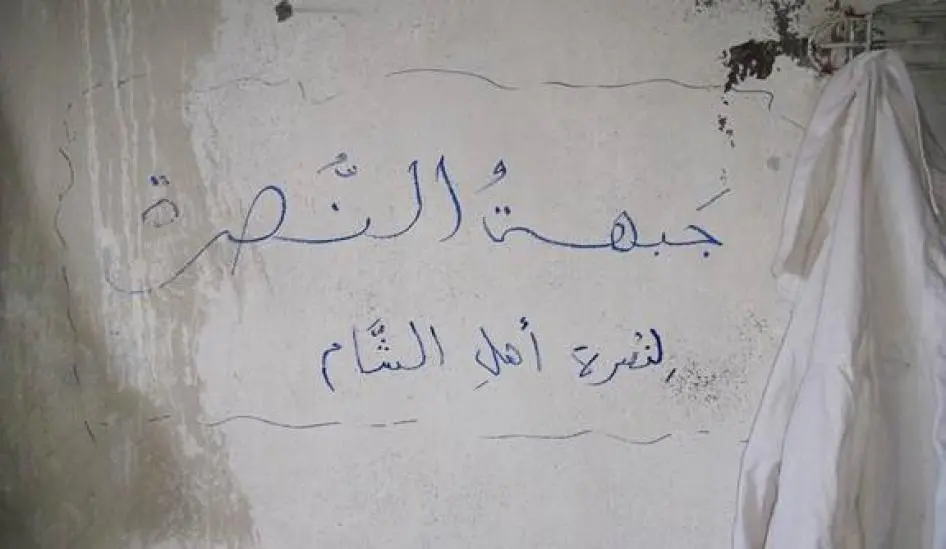 جَبهةُ النَّصرة
لِنُصرة أهلِ الشَّام